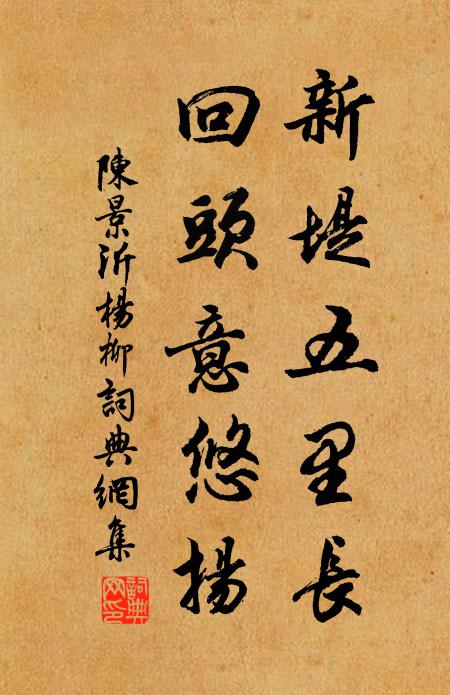 新堤五里長
回頭意悠揚
陳景沂楊柳詞典網集
詞典網印